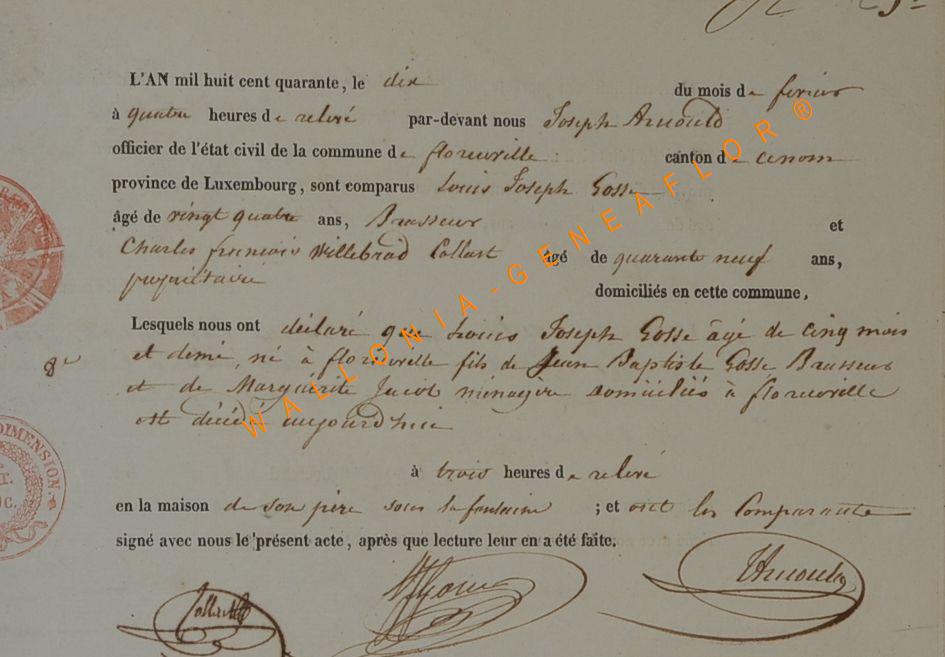 L'AN mil huit cent quarante, le dix du mois de fevrier
à quatre heures de relevé par-devant nous Joseph Arnould
officier de l'état civil de la commune de florenville canton de
province de Luxembourg, sont comparus Louis Joseph Gosse
âgé de vingt quatre ans, Brasseur et
Charles francois Willebrod Collart âgé de quarante neuf ans,
propriétaire domiciliés en cette commune,
Lesquels nous ont déclaré que Louis Joseph Gosse âgé de cinq mois
et demi, né à florenville fils de Jean Baptiste Gosse Brasseur
et de Marguerite Jacob ménagère domiciliés à florenville
est décédé aujourd'hui
à trois heures de relevé
en la maison de son père sous la fontaine ; et ont les Comparants
signé avec nous le présent acte, après que lecture leur en a été faite.
Collart Gosse Arnould
WALLONIA-GENEAFLOR®
DIMENSION